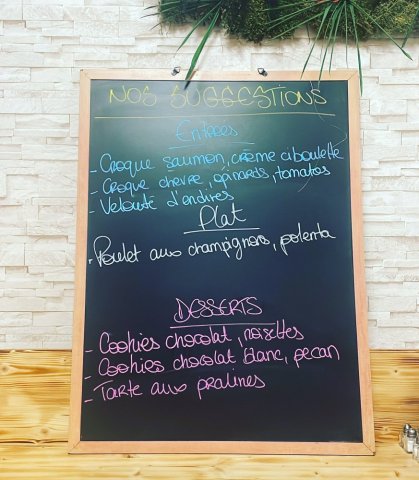 NOS SUGGESTIONS
Entrées
- Croque saumon, crème ciboulette
- Croque chèvre, épinards, tomates
- Velouté d'endives
Plat
- Poulet aux champignons, polenta
DESSERTS
- Cookies chocolat, noisettes
- Cookies chocolat blanc, pecan
- Tarte aux pralines